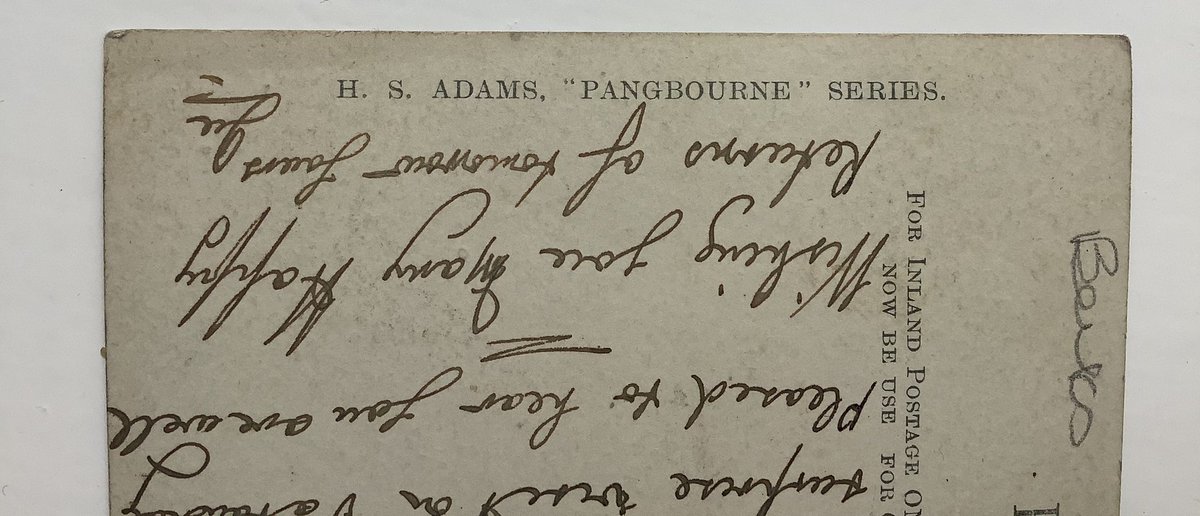 H. S. ADAMS, "PANGBOURNE" SERIES.
surprise visit on
pleased to hear you are well
Wishing you many Happy
Returns of tomorrow yours
FOR INLAND POSTAGE ON
NOW BE USE FOR
Berks